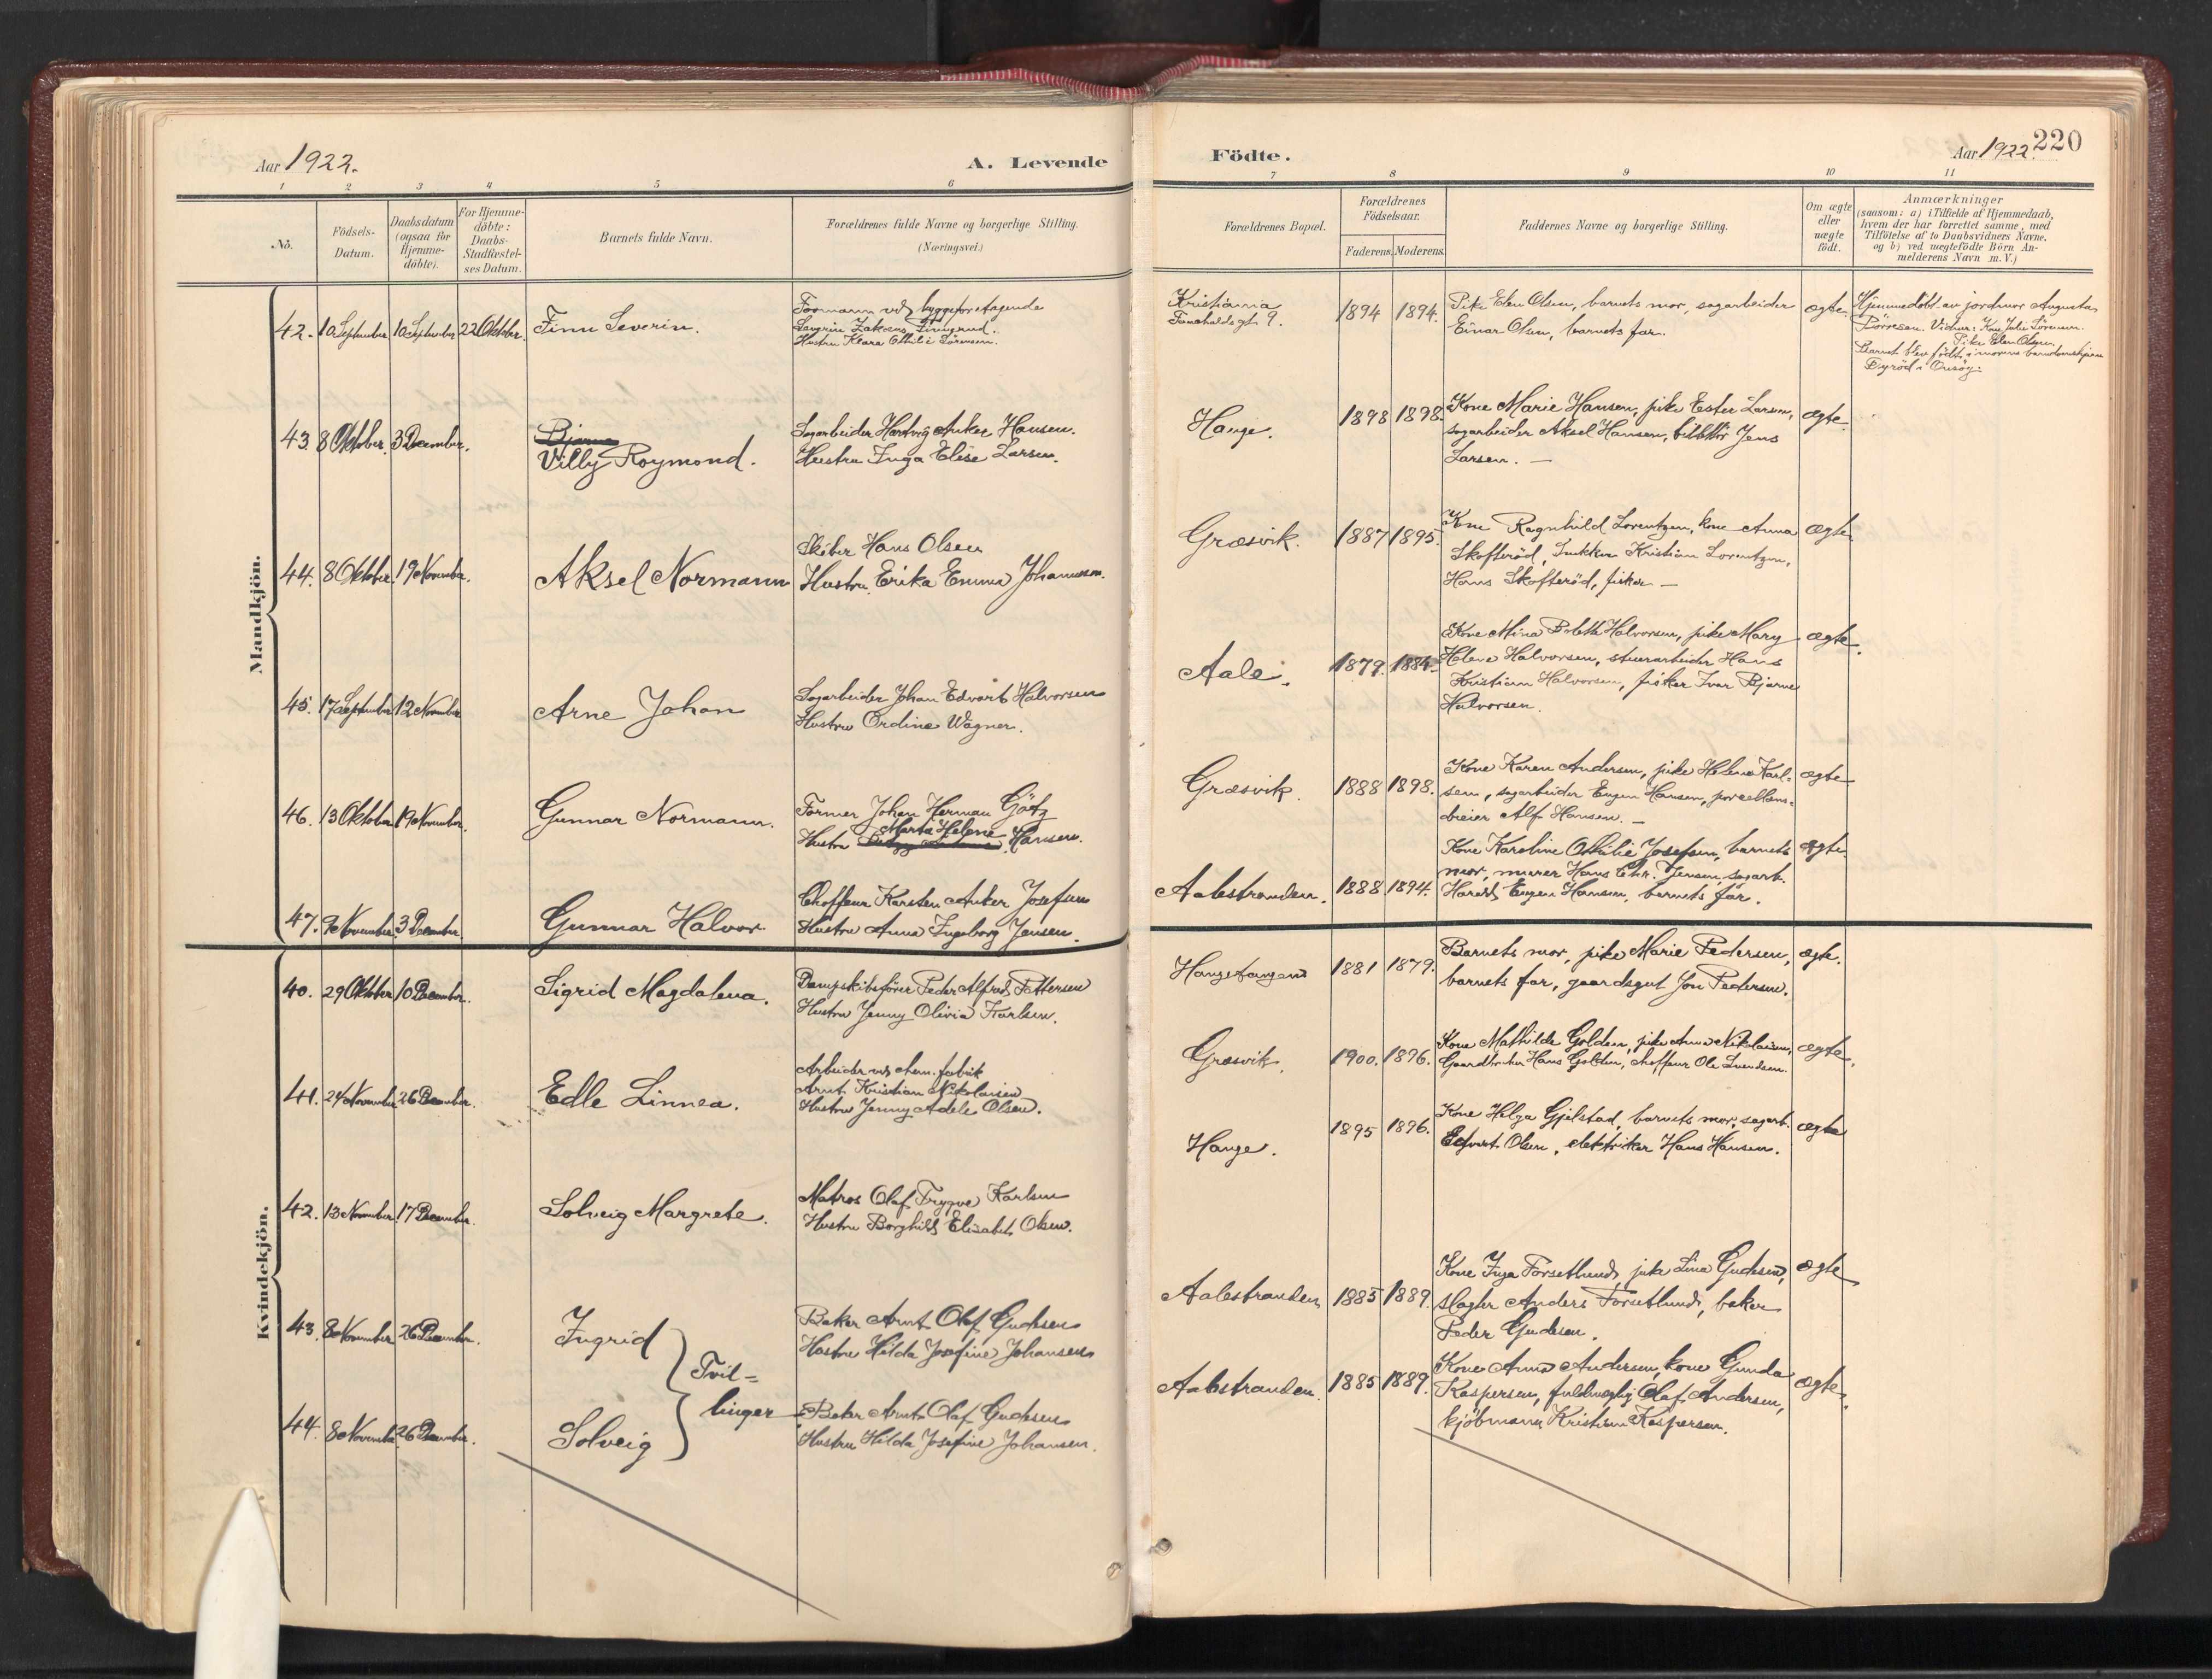 Aar 1922.
A. Levende
Födte.
Aar 1922.
220
1 2 3 4 5 6
7 8 9 10 11
No.
Födsels-
Datum.
Daabsdatum
(ogsaa for
Hjemme-
döbte).
For Hjemme-
döbte:
Daabs-
Stadfæstel-
ses Datum.
Barnets fulde Navn.
Forældrenes fulde Navne og borgerlige Stilling.
(Næringsvei.)
Forældrenes Bopæl.
Forældrenes
Födselsaar.
Faderens. Moderens.
Faddernes Navne og borgerlige Stilling.
Om ægte
eller
uægte
födt.
Anmærkninger
(saasom: a) i Tilfælde af Hjemmedaab,
hvem der har forrettet samme, med
Tilföielse af to Daabsvidners Navne,
og b) ved uægtefödte Börn An-
melderens Navn m. V.)
Mandkjön.
42. 10 September 10 September 22 Oktober. Finn Severin.
Formann ved byggeforetagende
Hustru Klara Othilie Sörensen.
Kristiania
1894 1894.
Pike Elen Olsen, barnets mor, sagarbeider
Einar Olsen, barnets far.
ægte.
Hjemmedöbt av jordmor Augusta
Börresen. Vidner: Kone Julie Sörensen.
Pike Elen Olsen.
Barnet blev födt i morens barndomshjem
Dyröd i Onsöy.
43. 8 Oktober. 3 December.
Bjarne
Villy Roymond.
Sagarbeider Hartvig Anker Hansen.
Hustru Inga Elise Larsen.
Hauge.
1898 1898.
Kone Marie Hansen, pike Ester Larsen,
sagarbeider Aksel Hansen, Jens
Larsen. —
ægte.
44. 8 Oktober. 19 November. Aksel Normann
Skiber Hans Olsen
Hustru Erika Emma Johannesen.
Græsvik.
1887 1895.
Kone Ragnhild Lorentzen, kone Anna
Skofteröd, Snekker Kristian Lorentzen,
Hans Skofteröd, fisker —
ægte
45. 17 September 12 November Arne Johan
Sagarbeider Johan Edvart Halvorsen
Hustru Ordine Wagner.
Aale.
1879. 1884.
Kone Mina Bolette Halvorsen, pike Mary
Helene Halvorsen, stuerarbeider Hans
Kristian Halvorsen, fisker Ivar Bjarne
Halvorsen.
ægte.
46. 13 Oktober 19 November. Gunnar Normann.
Former Johan Herman Götz
Marta Helene
Hustru Hansen.
Græsvik.
1888 1898.
Kone Karen Andersen, pike Helene Karl-
sen, sagarbeider Eugen Hansen, porcellæns-
dreier Alf Hansen. —
ægte
47. 9 November. 3 December Gunnar Halvor.
Choffeur Karsten Anker Josefsen
Hustru Anna Ingeborg Jensen.
Aalestranden.
1888 1894.
Kone Karoline Othilie Josefsen, barnets
mor, murer Hans Chr. Jensen, sagarb.
Harald Eugen Hansen, barnets far.
ægte.
Kvindekjön.
40. 29 Oktober 10 December. Sigrid Magdalena.
Dampskibsförer Peder Alfred Pettersen
Hustru Jenny Olivia Karlsen.
Haugetangen
1881 1879.
Barnets mor, pike Marie Pedersen,
barnets far, gaardsgut Jon Pedersen.
ægte.
41. 24 November 26 December. Edle Linnea.
Arbeider ved chem. fabrik
Arnt Kristian Nikolaisen
Hustru Jenny Adele Olsen.
Græsvik.
1900. 1896.
Kone Mathilde Golden, pike Anna Nikolaisen,
Gaardbruker Hans Golden, choffeur Ole Svendsen.
ægte.
42. 13 November. 17 December. Solveig Margrete.
Matros Olaf Trygve Karlsen
Hustru Borghild Elisabet Olsen.
Hauge.
1895 1896.
Kone Helga Gjelstad, barnets mor, sagarb.
Edvart Olsen, elektriker Hans Hansen.
ægte
43. 8 November 26 December. Ingrid
Baker Arnt Olaf Gudesen
Hustru Hilda Josefine Johansen
Aalestranden
1885 1889.
Kone Inga Forsetlund, pike Lina Gudesen,
slagter Anders Forsetlund, baker
Peder Gudesen.
ægte
Tvil-
linger
44. 8 November. 26 December. Solveig
Baker Arnt Olaf Gudesen
Hustru Hilda Josefine Johansen.
Aalestranden.
1885 1889.
Kone Anna Andersen, kone Gunda
Kaspersen, fuldmægtig Olaf Andersen,
kjöbmann Kristian Kaspersen.
ægte.